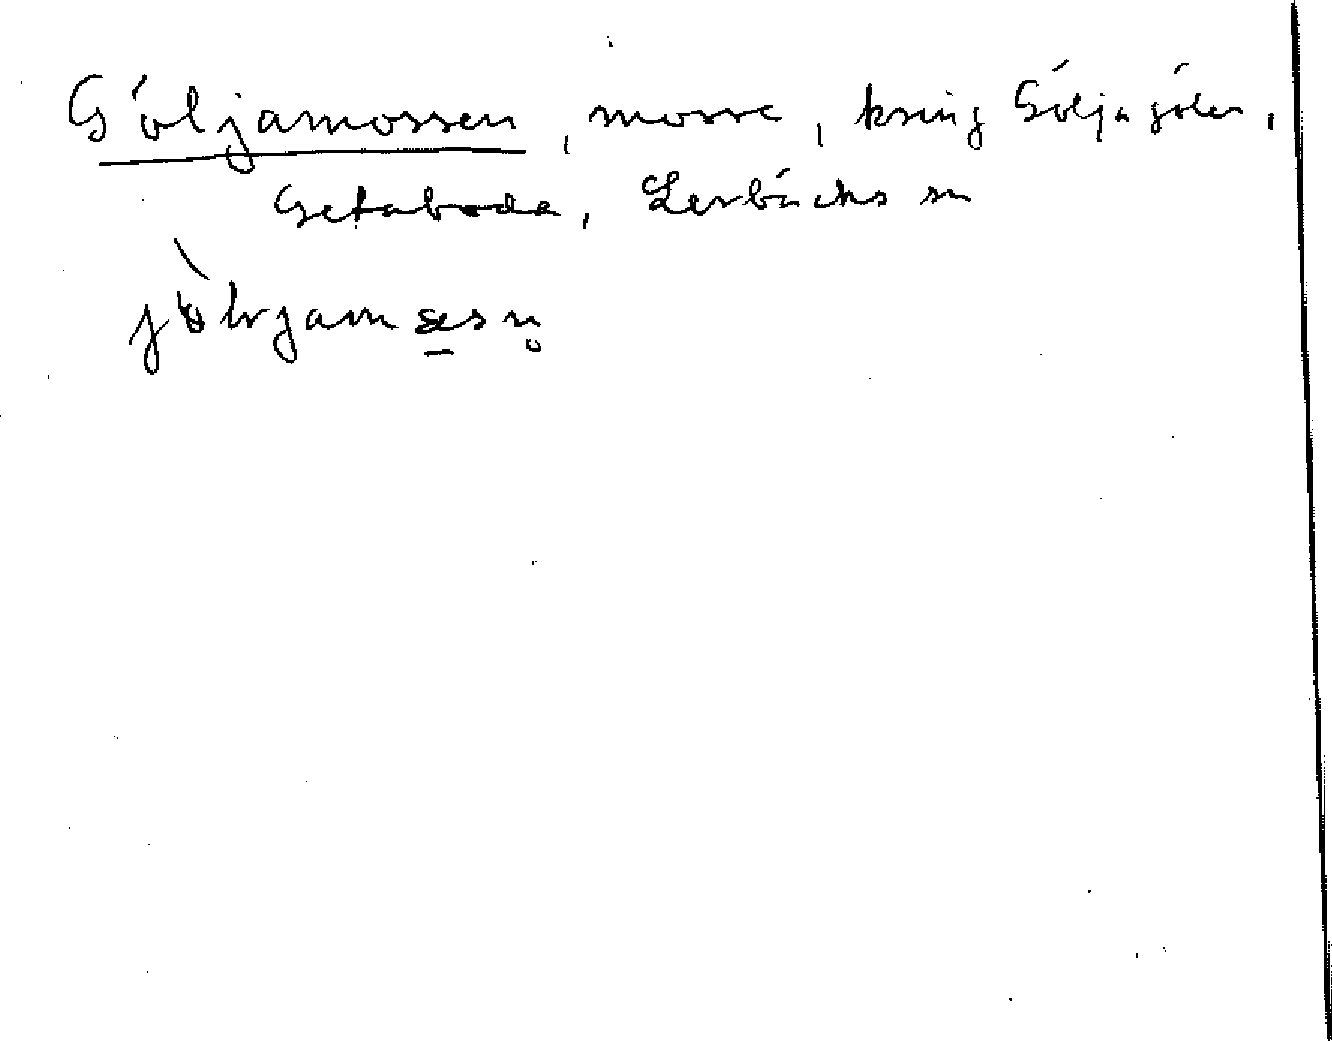 Göljamossen, mosse, kring Göljagölen,
Getaboda, Lerbäcks sn